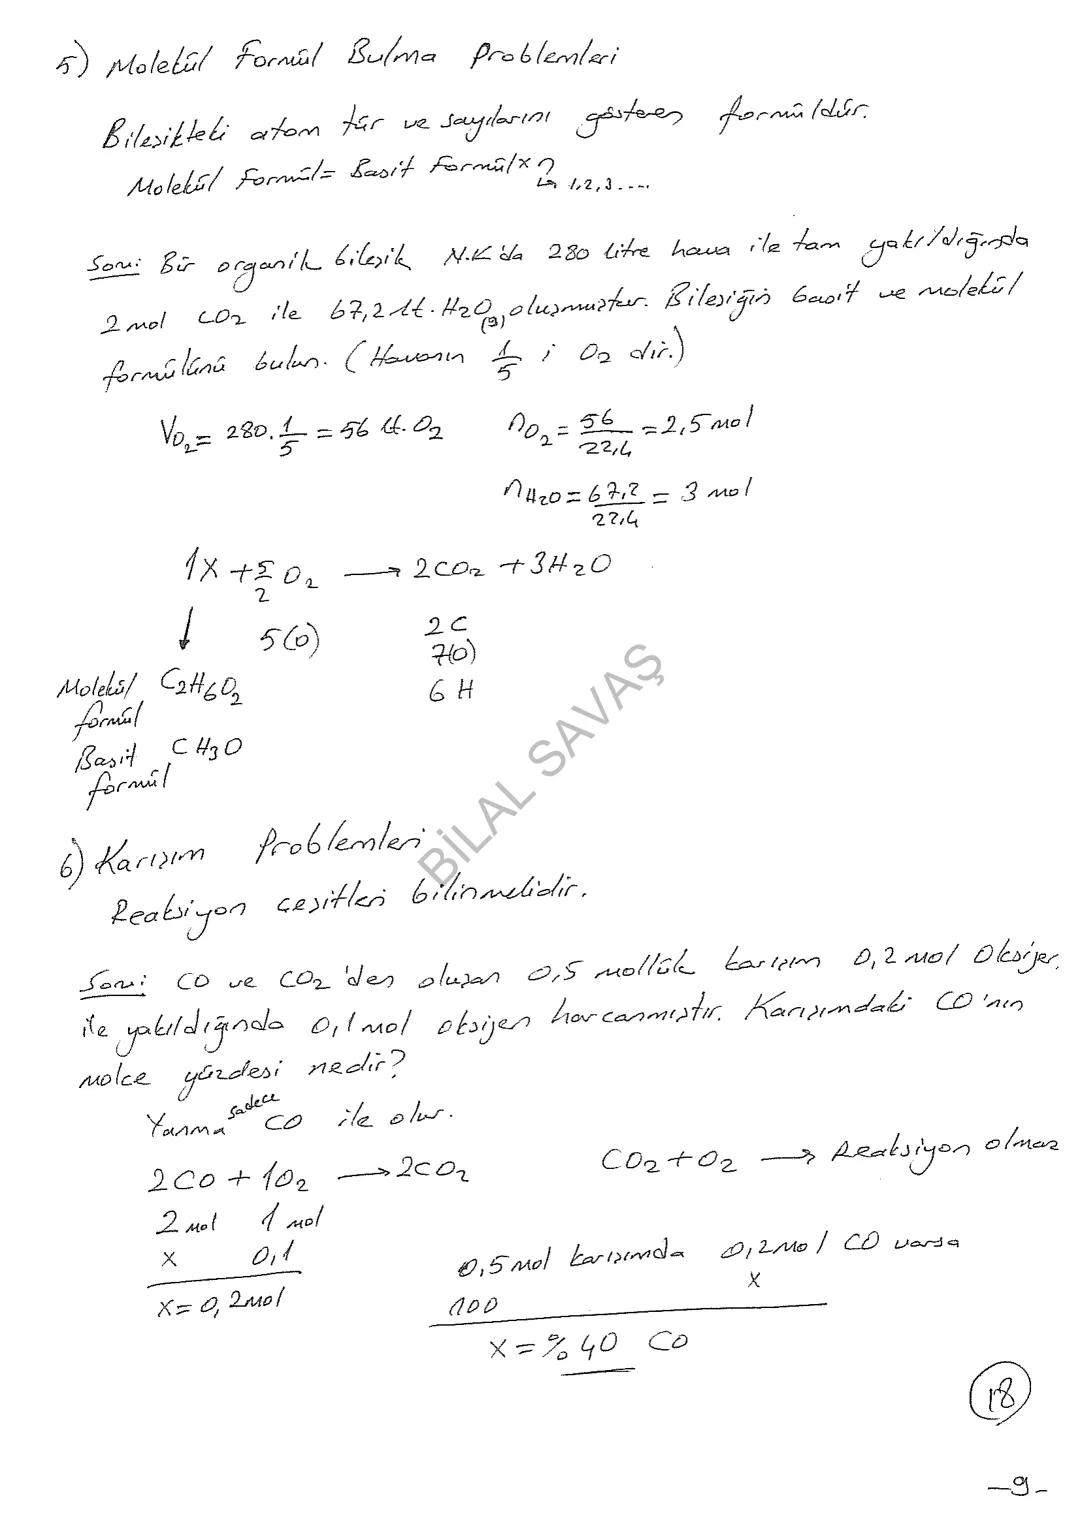 5) Molekül Formül Bulma Problemleri
Bileşikteki atom tür ve sayılarını gösteren formüldür.
Molekül Formül = Basit Formül x n
↳ 1,2,3....
Soru: Bir organik bileşik N.K'da 280 litre hava ile tam yakıldığında
2 mol CO2 ile 67,2 lt. H2O(g) oluşmuştur. Bileşiğin basit ve molekül
formülünü bulun. (Havanın 1/5 i O2 dir.)
VO2 = 280 . 1/5 = 56 lt. O2 nO2 = 56/22,4 = 2,5 mol
nH2O = 67,2/22,4 = 3 mol
1X + 5/2 O2 → 2CO2 + 3H2O
↓ 5(O) 2C
7(O)
Molekül formül C2H6O2 6 H
Basit formül CH3O
BİLAL SAVAŞ
6) Karışım Problemleri
Reaksiyon çeşitleri bilinmelidir.
Soru: CO ve CO2 'den oluşan 0,5 mollük karışım 0,2 mol Oksijen
ile yakıldığında 0,1 mol oksijen harcanmıştır. Karışımdaki CO'nın
molce yüzdesi nedir?
Yanma sadece CO ile olur.
2CO + 1O2 → 2CO2 CO2 + O2 → Reaksiyon olmaz
2 mol 1 mol
x 0,1
x = 0,2 mol
0,5 mol karışımda 0,2 mol CO varsa
100 x
x = % 40 CO
18
-9-